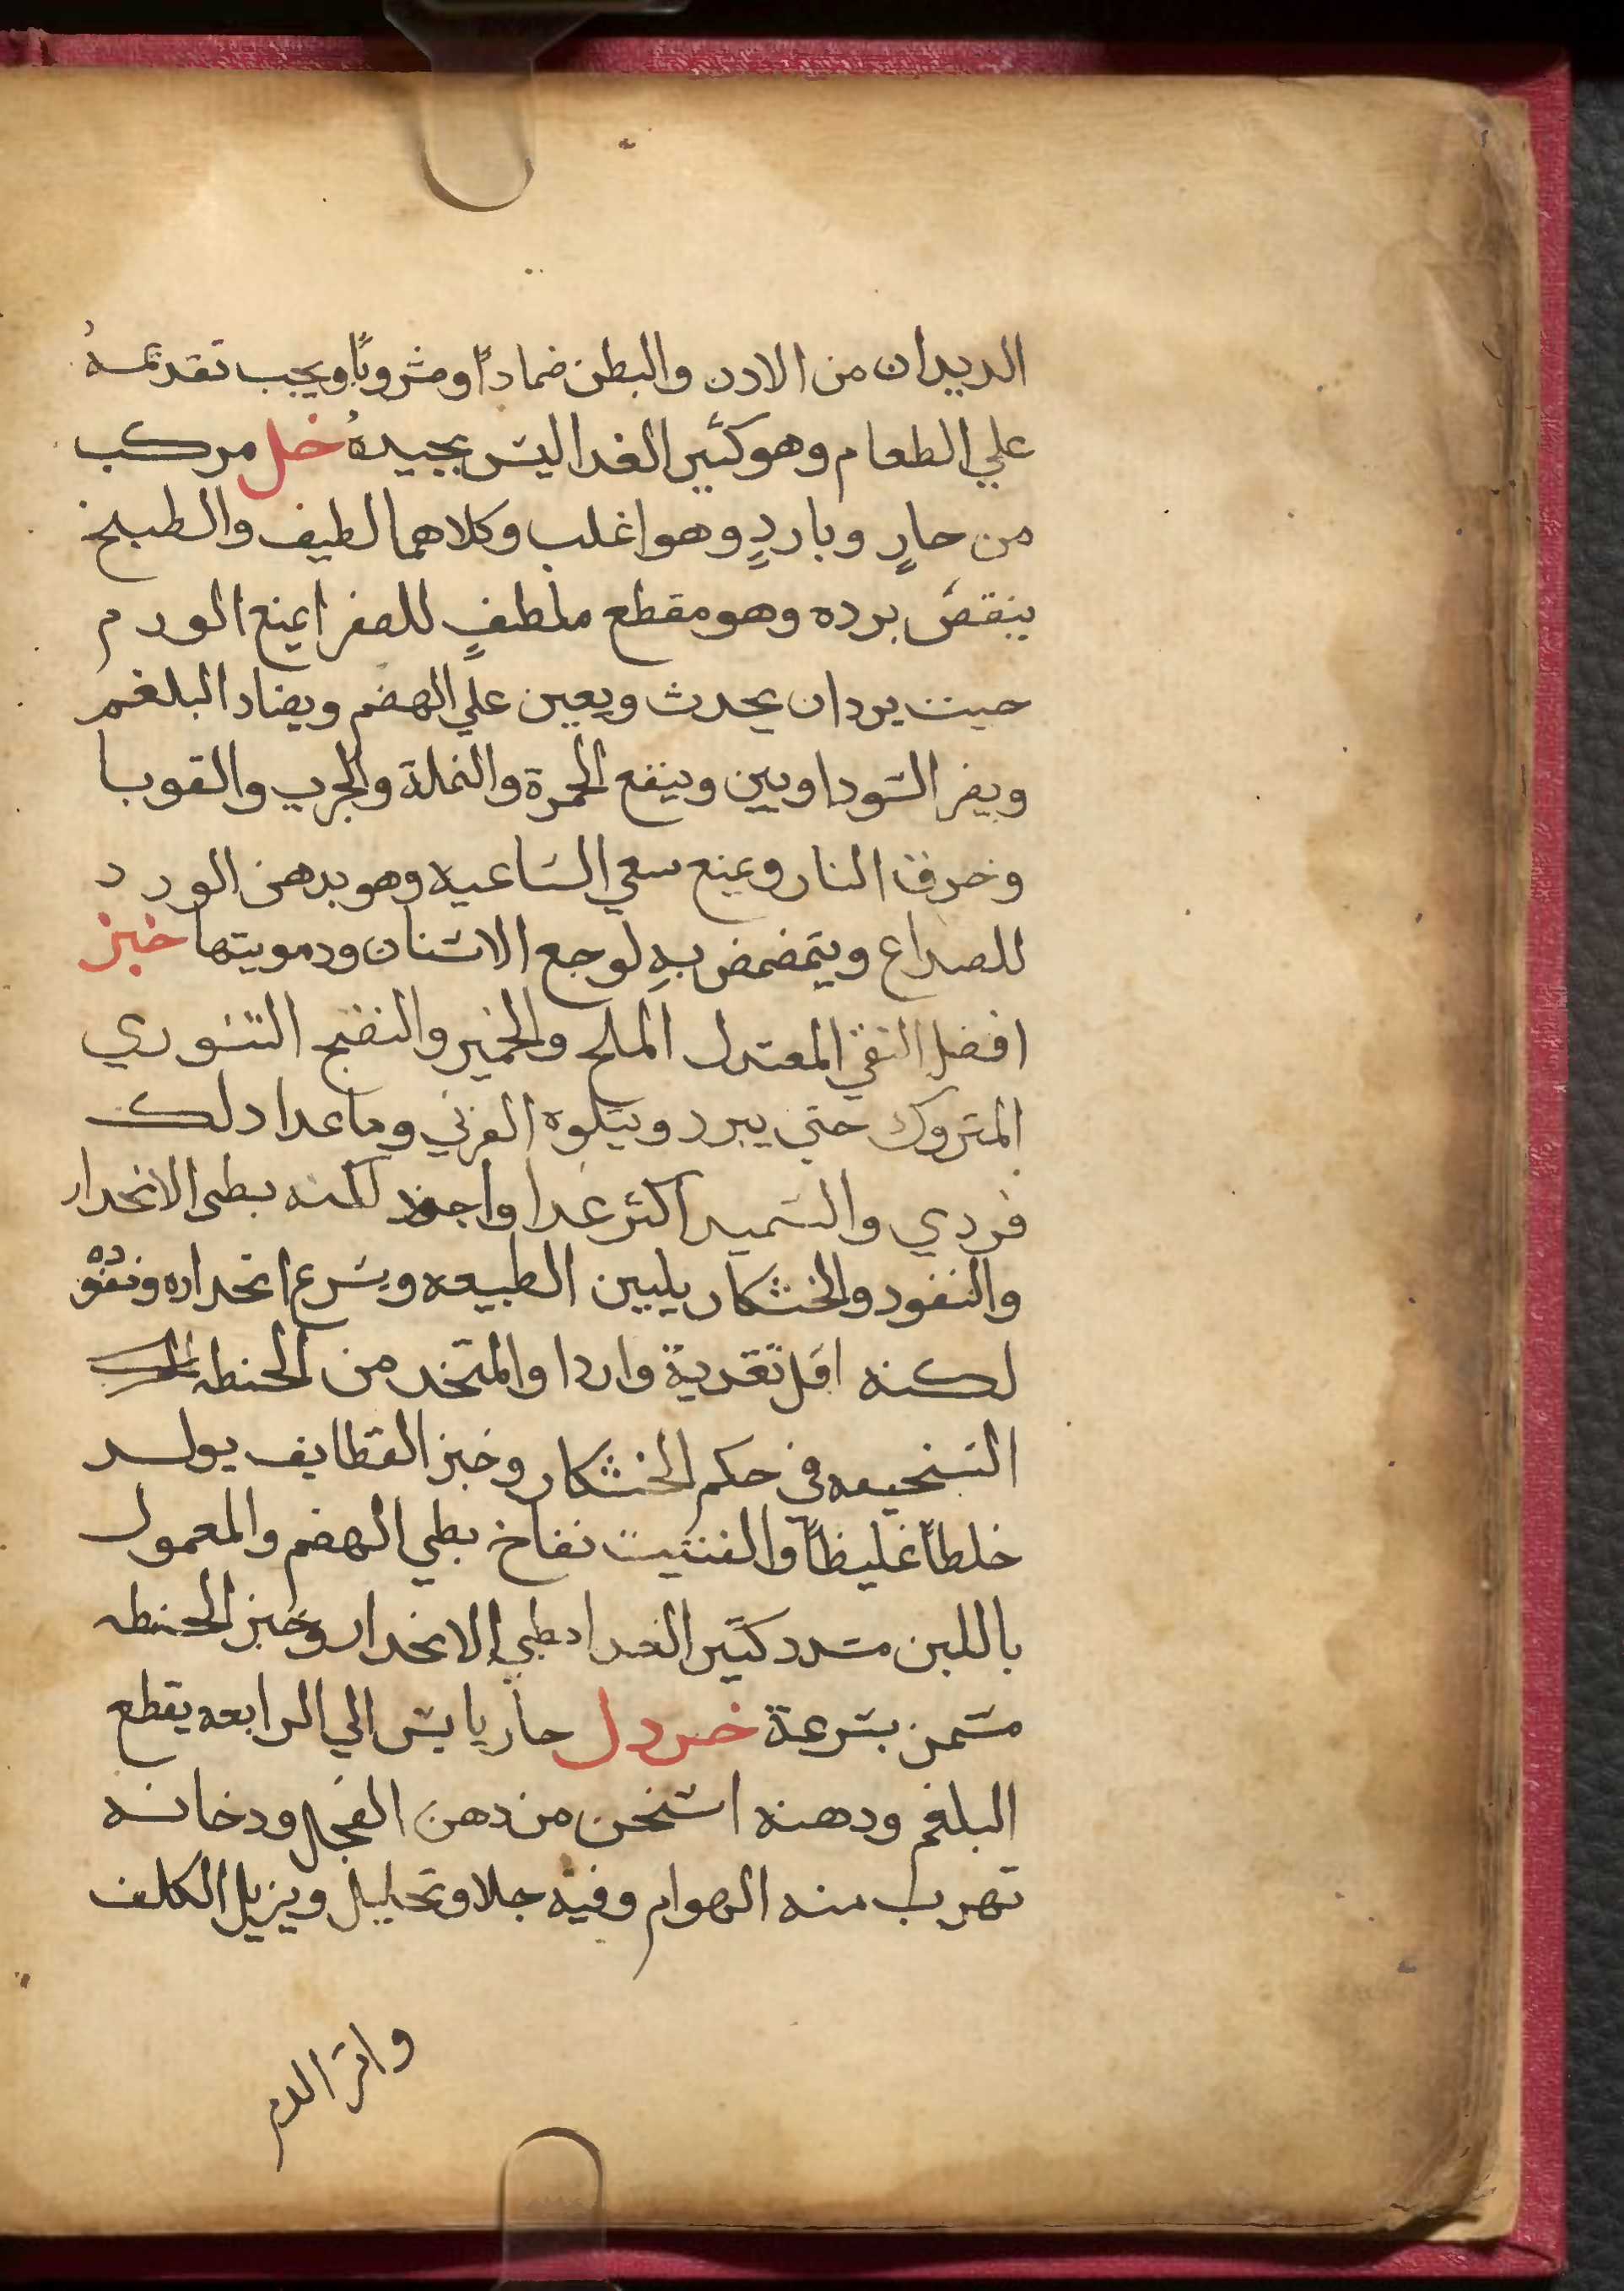 الديدان من الادن والبطن ضمادًا ومشروبًا ويجب تقديمهُ
علي الطعام وهو كثير الغدا ليس بجيدهُ خل مركب
من حارٍ وباردٍ وهو اغلب وكلاهما لطيف والطبخ
ينقصُ برده وهو مقطع ملطفٍ للصفرا يمنع الورم
حيت يردان يحدث ويعين علي الهضم ويضاد البلغم
ويضر السوداويين وينفع الحمرة والنملة والجرب والقوبا
وحرق النار ويمنع سعي الساعيه وهو بدهن الورد
للصداع ويتمضمض بهِ لوجع الاسنان ودمويتها خبز
افضل النقي المعتدل الملح والخمير والنضج التنوري
المتروك حتي يبرد ويتلوه الفرني وما عدا دلك
فردي والسميد اكثر غدا واجود لكنه بطي الانحدار
والنفود والخشكار يليين الطبيعه ويسرع انحداره ونفوده
لكنه اقل تغدية واردا والمتخد من الحنطه
السخيفه في حكم الخشكار وخبز القطايف يولد
خلطًا غليظًا والفتيت نفاخ بطي الهضم والمعمول
باللبن مسدد كثير الغدا بطي الانحدار وخبز الحنطه
مسمن بسرعة خردل حار يابس الي الرابعه يقطع
البلغم ودهنه اسخن من دهن الفجل ودخانه
تهرب منه الهوام وفيه جلا وتحليل ويزيل الكلف
واثر الدم